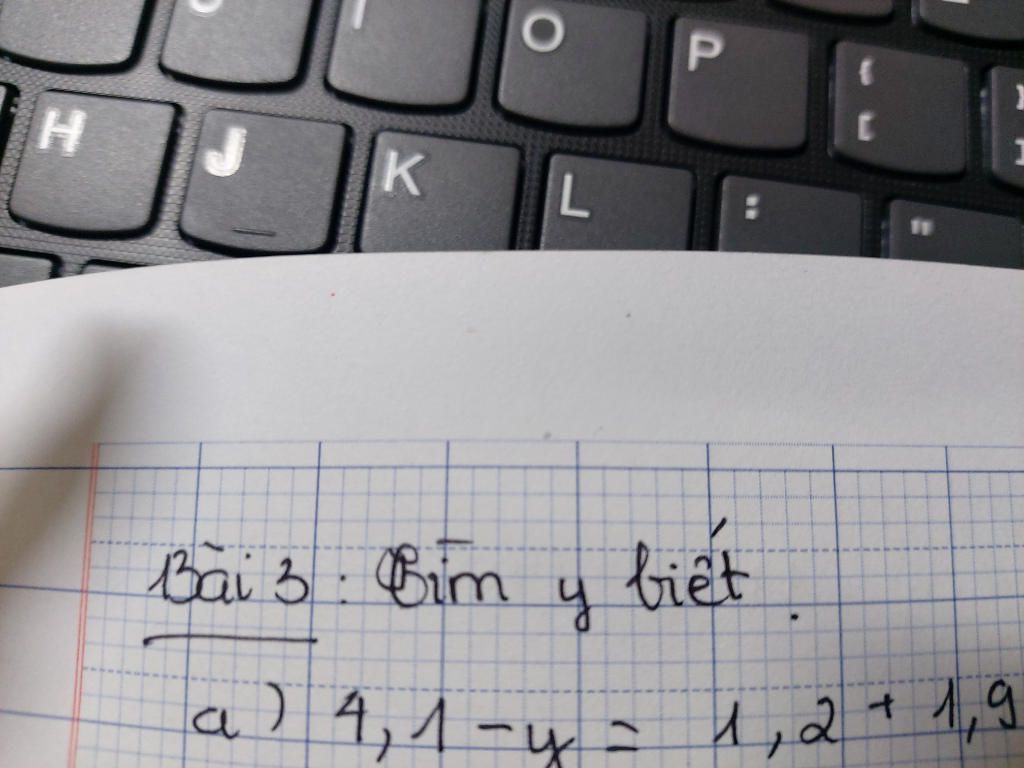 O P {
[
H J K L : "
Bài 3 : Tìm y biết.
a) 4,1 - y = 1,2 + 1,9